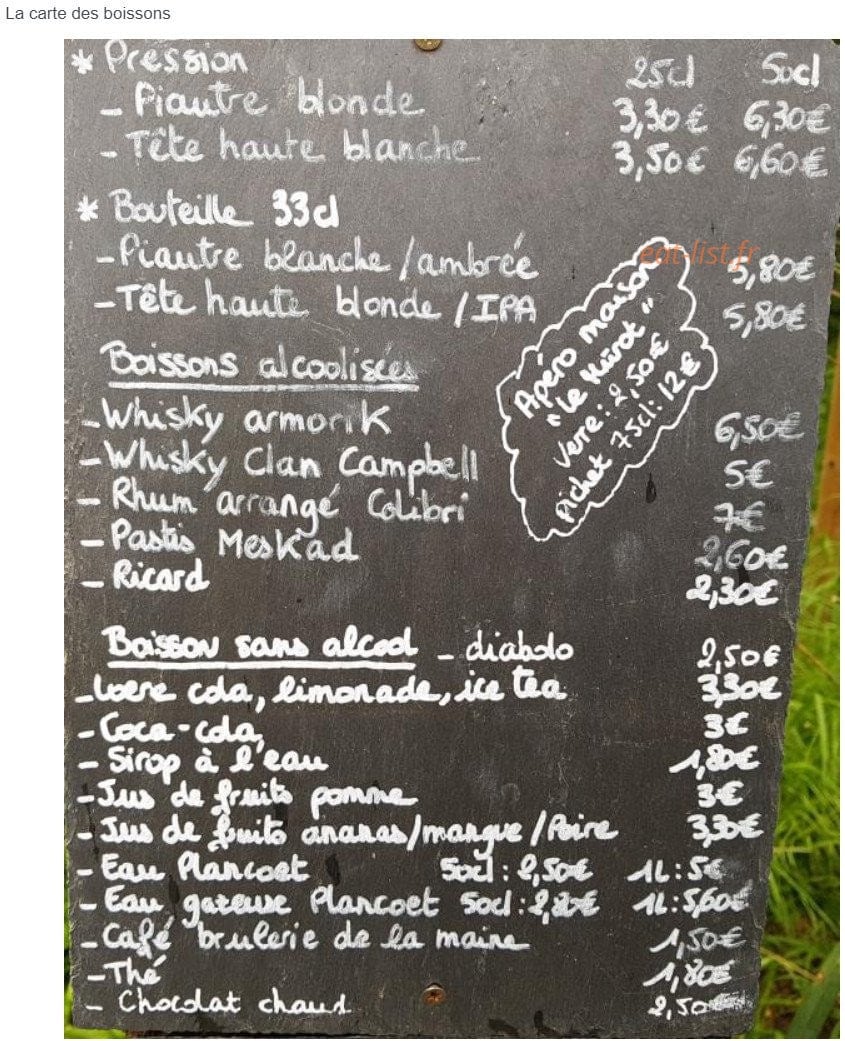 La carte des boissons
* Pression 25cl 50cl
- Piautre blonde 3,30€ 6,30€
- Tête haute blanche 3,50€ 6,60€
* Bouteille 33cl
eat-list.fr
- Piautre blanche / ambrée 5,80€
- Tête haute blonde / IPA 5,80€
Apéro maison
"Le
Verre : 2,50€
Pichet 75cl : 12€
Boissons alcoolisées
- Whisky armorik 6,50€
- Whisky Clan Campbell 5€
- Rhum arrangé Colibri 7€
- Pastis Meskad 2,60€
- Ricard 2,30€
Boisson sans alcool - diabolo 2,50€
- Loere cola, limonade, ice tea 3,30€
- Coca-cola, 3€
- Sirop à l'eau 1,80€
- Jus de fruits pomme 3€
- Jus de fruits ananas/mangue/Poire 3,30€
- Eau Plancoet 50cl : 2,50€ 1L : 5€
- Eau gazeuse Plancoet 50cl : 2,80€ 1L : 5,60€
- Café brulerie de la maine 1,50€
- Thé 1,80€
- Chocolat chaud 2,50